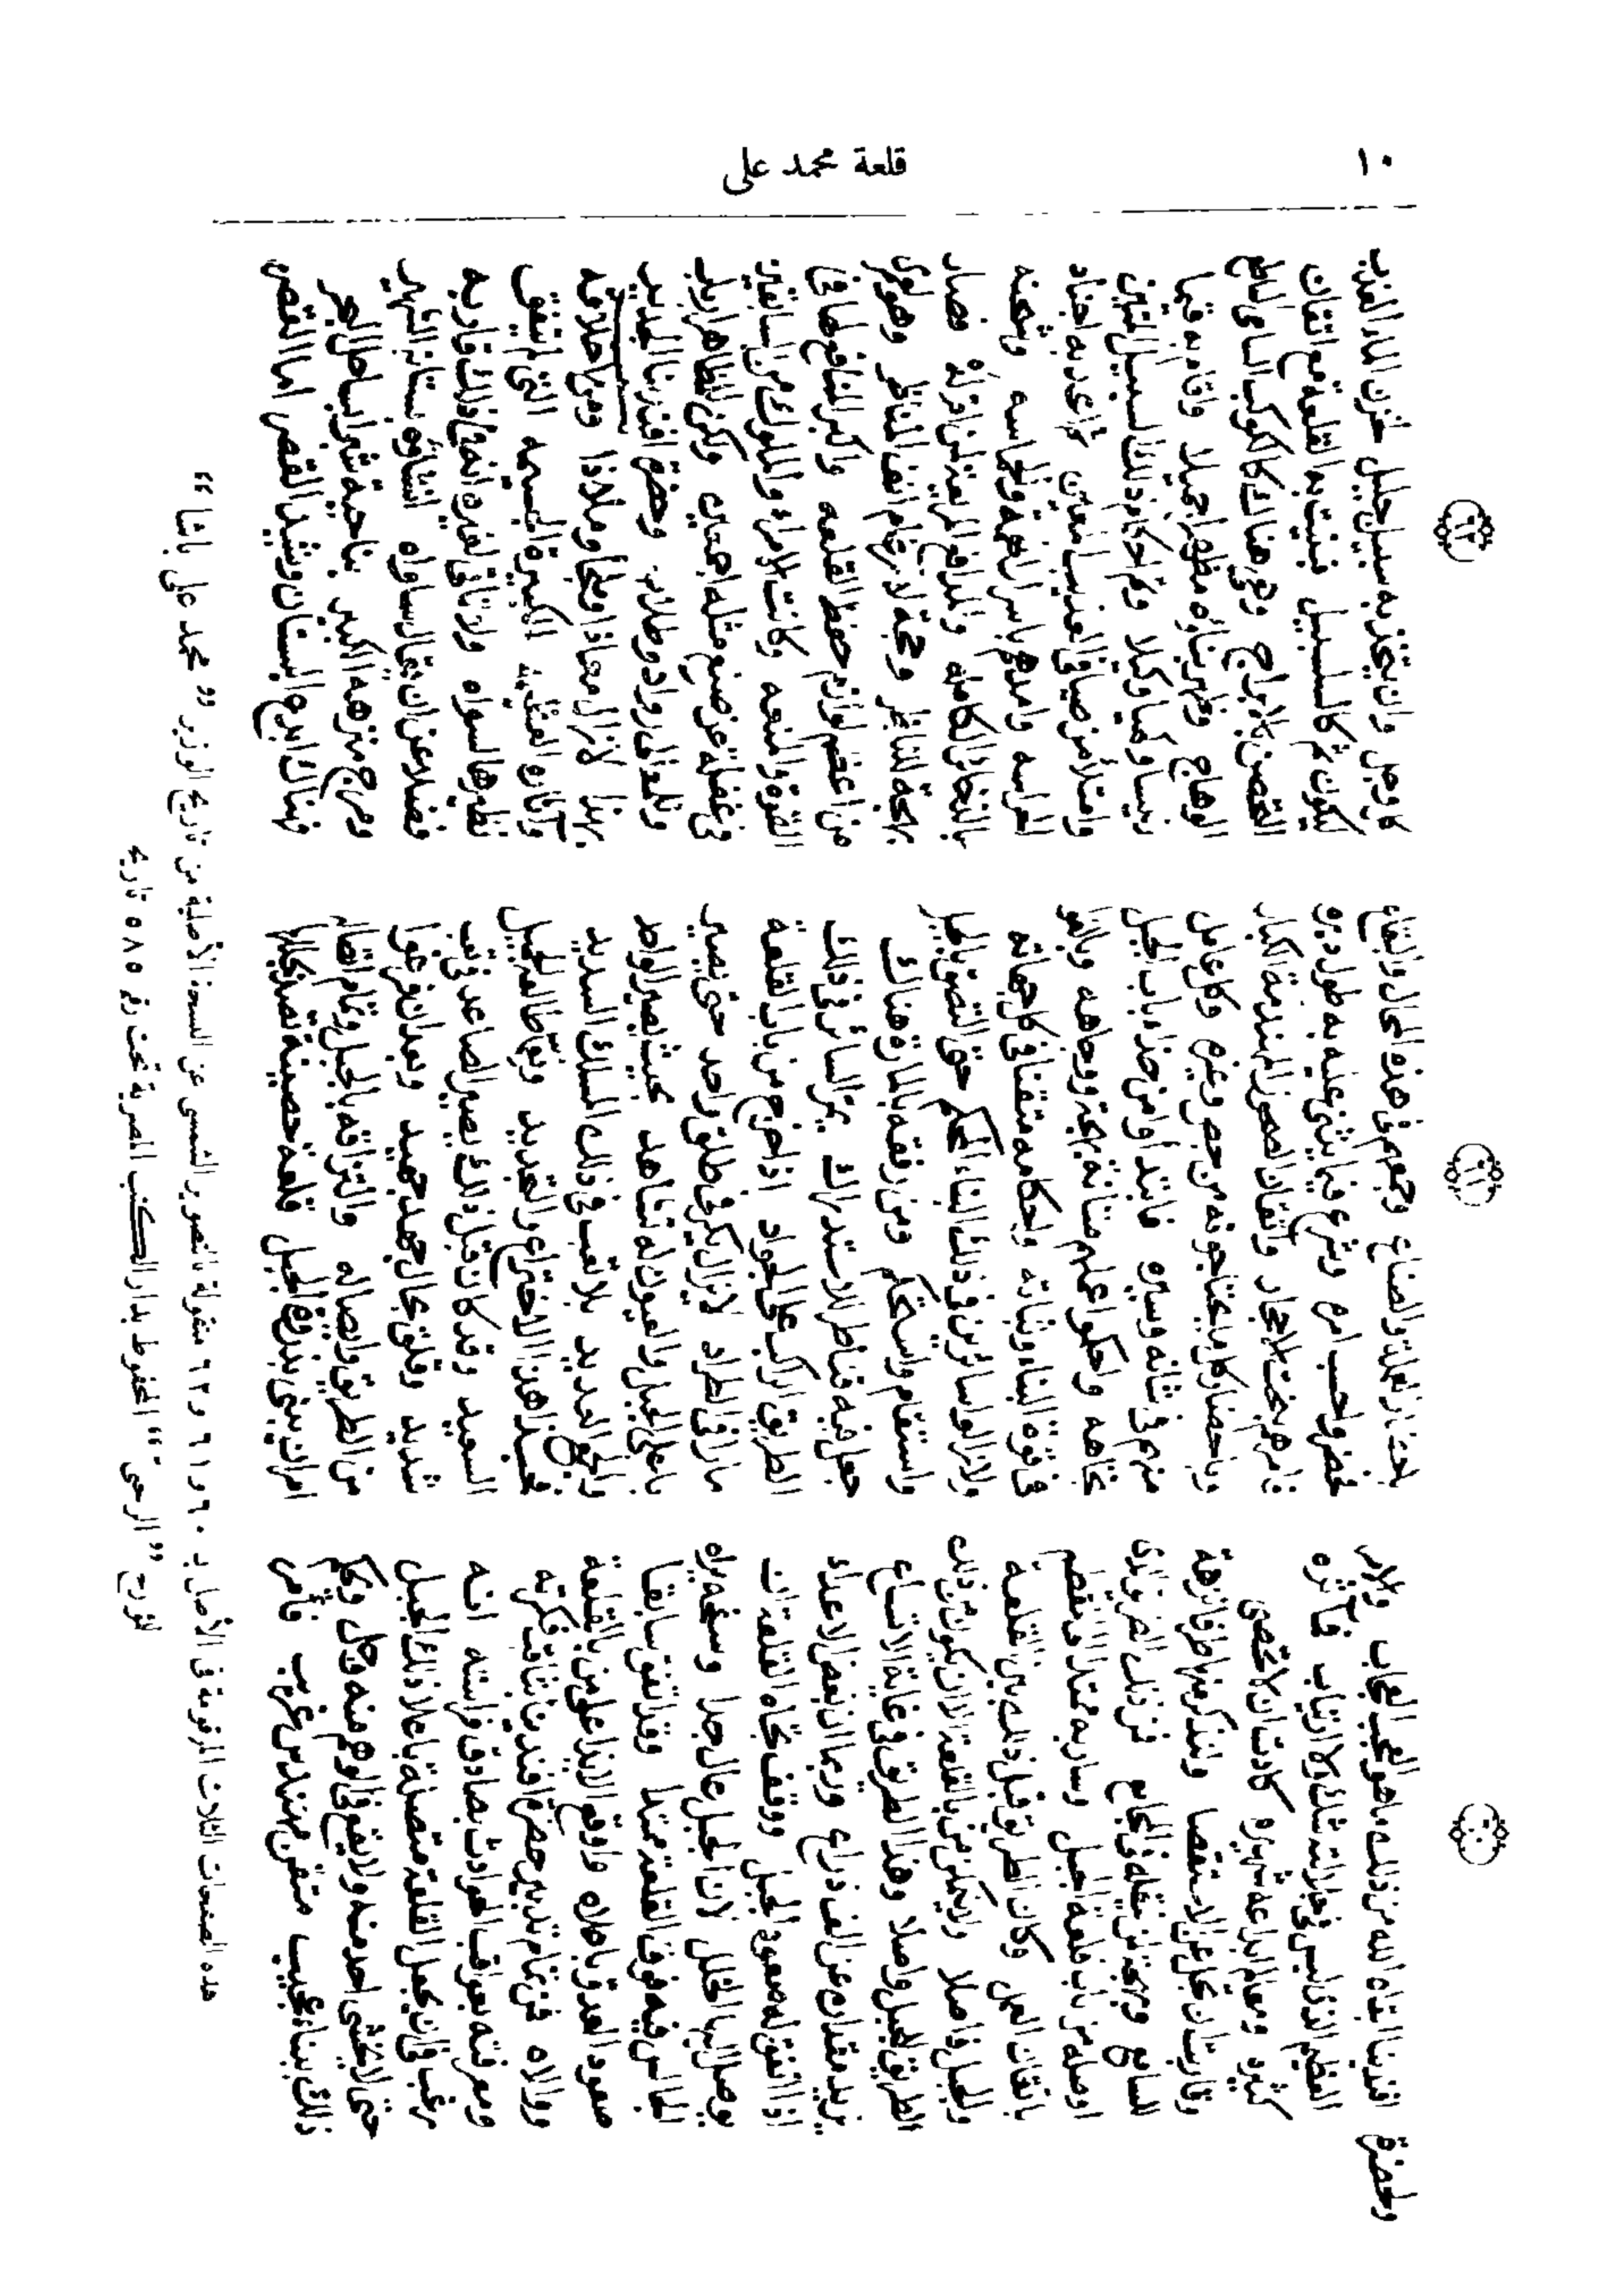 ١٠ قلعة محمد على
٦٠
ولحضرة افندينا ابقاه الله من ذلك ما هو العجب العجاب ولاثار
العظيم الذى ليس فى جلالته شك ولا ارتياب فمآثره
كثيره ومعالم ابداعه شهيره كادت ان لا تحصى
وقاربت ان تجل عن الاستقصا ولنذكر منها طرفا نزهة
للسامع وبهجة لمن يتلقاه فى المجامع فمن ذلك الطريق الذى
اوصله من باب قلعة الجبل وسار به ممتدا الى المقطم
باتقان العمل وكان الطريق قبل ذلك بين القلعة
والجبل فاصلا ولا يمكن من بالقلعة الا ان يكون من ذلك
الطريق للجبل واصلا وهذا الطريق فى غاية الاتساع
يزيد مقداره عن الف ذراع وربما ان بعض الاعداء
اذا اتفق له صعود الجبل ووقف تجاه القلعة ان
يوصل اليها الخلل لان الجبل عال جدا وسفحه يراه
الجالس فيه فوق القلعة ممتدا وقد اتفق سابقا
صعود العدو باعلاه واوقع الايذاء على من بالقلعة
ووالاه فمن تمام تدبير حضرة افندينا ثاقب فكرته
ومعرفته بعواقب الحوادث بصادق فراسته انه
رغب فى ان يجعل القلعة متصلة باعلا ذلك الجبل
حتى لا يخشى احد منه ولا يقع فى الوهم منه
ذلك عجيب متقن مهندس غريب فامر
٦١
باحضار الفعلة والصناع وجمعهم فى هذه المحال والبقاع
فحضروا حسب امره وشرع فيما يثنى عليه به طول دهره
فامرهم بنحت الاحجار واتقان الصخور المهندمة الكبار
وباحضار كل ما يحتاجونه من حجر وغيره وكل عامل
منهم فى شانه وسيره فابتدأوا من حذاء باب الجبل
تجاهه واحكموا عملهم متانة وبهجة ووجاهه وبالغوا
فى قوة البناء وثباته واحكامه متقنا فى كل جهاته
ولازالوا سائرين فى ذلك البناء المحكم حتى التصق بالجبل
واستقام واستحكم ومن رفقه بالمارة هناك
جعل فيه قناطر للاستدراك يمر السائر فى ذلك
الطريق الراكب على الجواد اذا خرج من باب القلعة
مارا فى اطراد لا يزال يكر فى طلق واحد حتى يصير
باعلى الجبل والعيون له تشاهد بحيث يصير
والجمع العديد بلا تعب فى ذلك المسلك السديد
فحبذا هذا الاختراع والتجديد طالعه الجميل
السعيد وقد كان قبل ذلك يصير الصاعد فى تعب
شديد وقلق بحال جهد جهيد وبعد ان فرغوا
من الطريق واتصاله والتزاقه بالجبل وتمام
امر ان يبنى بذروة الجبل قلعة حصينة
٦٢
كل وجل وان يتخذ به سبيل جليل يخزن الماء العذب
ليكون ثم كالسلسبيل فبنيت به القلعة مع اتقان
التحصن بالابراج وهى هناك كالكوكب السامى الساطع
الوهاج وظهر بناؤه منظرا جميلا واقام به فيها
رئيسا وكهيا وكيلا وتم احكام ذلك السبيل المتين
وامتلأ من العذب معين وأعد به اجناد
للحراسه وامدهم باسرار الهمة والحماسه وشحنه
بالذخائر الكامله والمدافع المرهبة فصار
بهجة للناظر ومحجة لارغام انف المناظر وهو لعمرى
من اعظم لوازم حفظ القلعه واكبر المنافع لها فى
القوة والمنعه وكانت الامراء والملوك من السابقين
فى غفلة عن صنع مثله اجمعين ولكن
وللمعالى رواد وطلاب وحضرة افندينا
بهذا لازال معاذا وملجأ وملاذا ومن اخلاقه
وآثاره العظيمه الكبيرة الجسيمه التى لم يتفق
نظيرها لسواه ولا تأتى لغيره انه فى ذلك قاربه
فضلا عن ان يقال ساواه انشاؤه بستانه الشهير
متنزهه الكبير بناحية شبرا بساحل البحر
البستان وشيد القصر اما القصر
هذه الصفحات الثلاث المرقومة فى الأصل بـ ٦٠ و ٦١ و ٦٢ منقولة بالتصوير الشمسى عن النسخة الأصلية من تاريخ الوزير "محمد على باشا"
للمؤرخ "الرجبى" المحفوظ بدار الكتب المصرية تحت رقم ٥٨٥ تاريخ